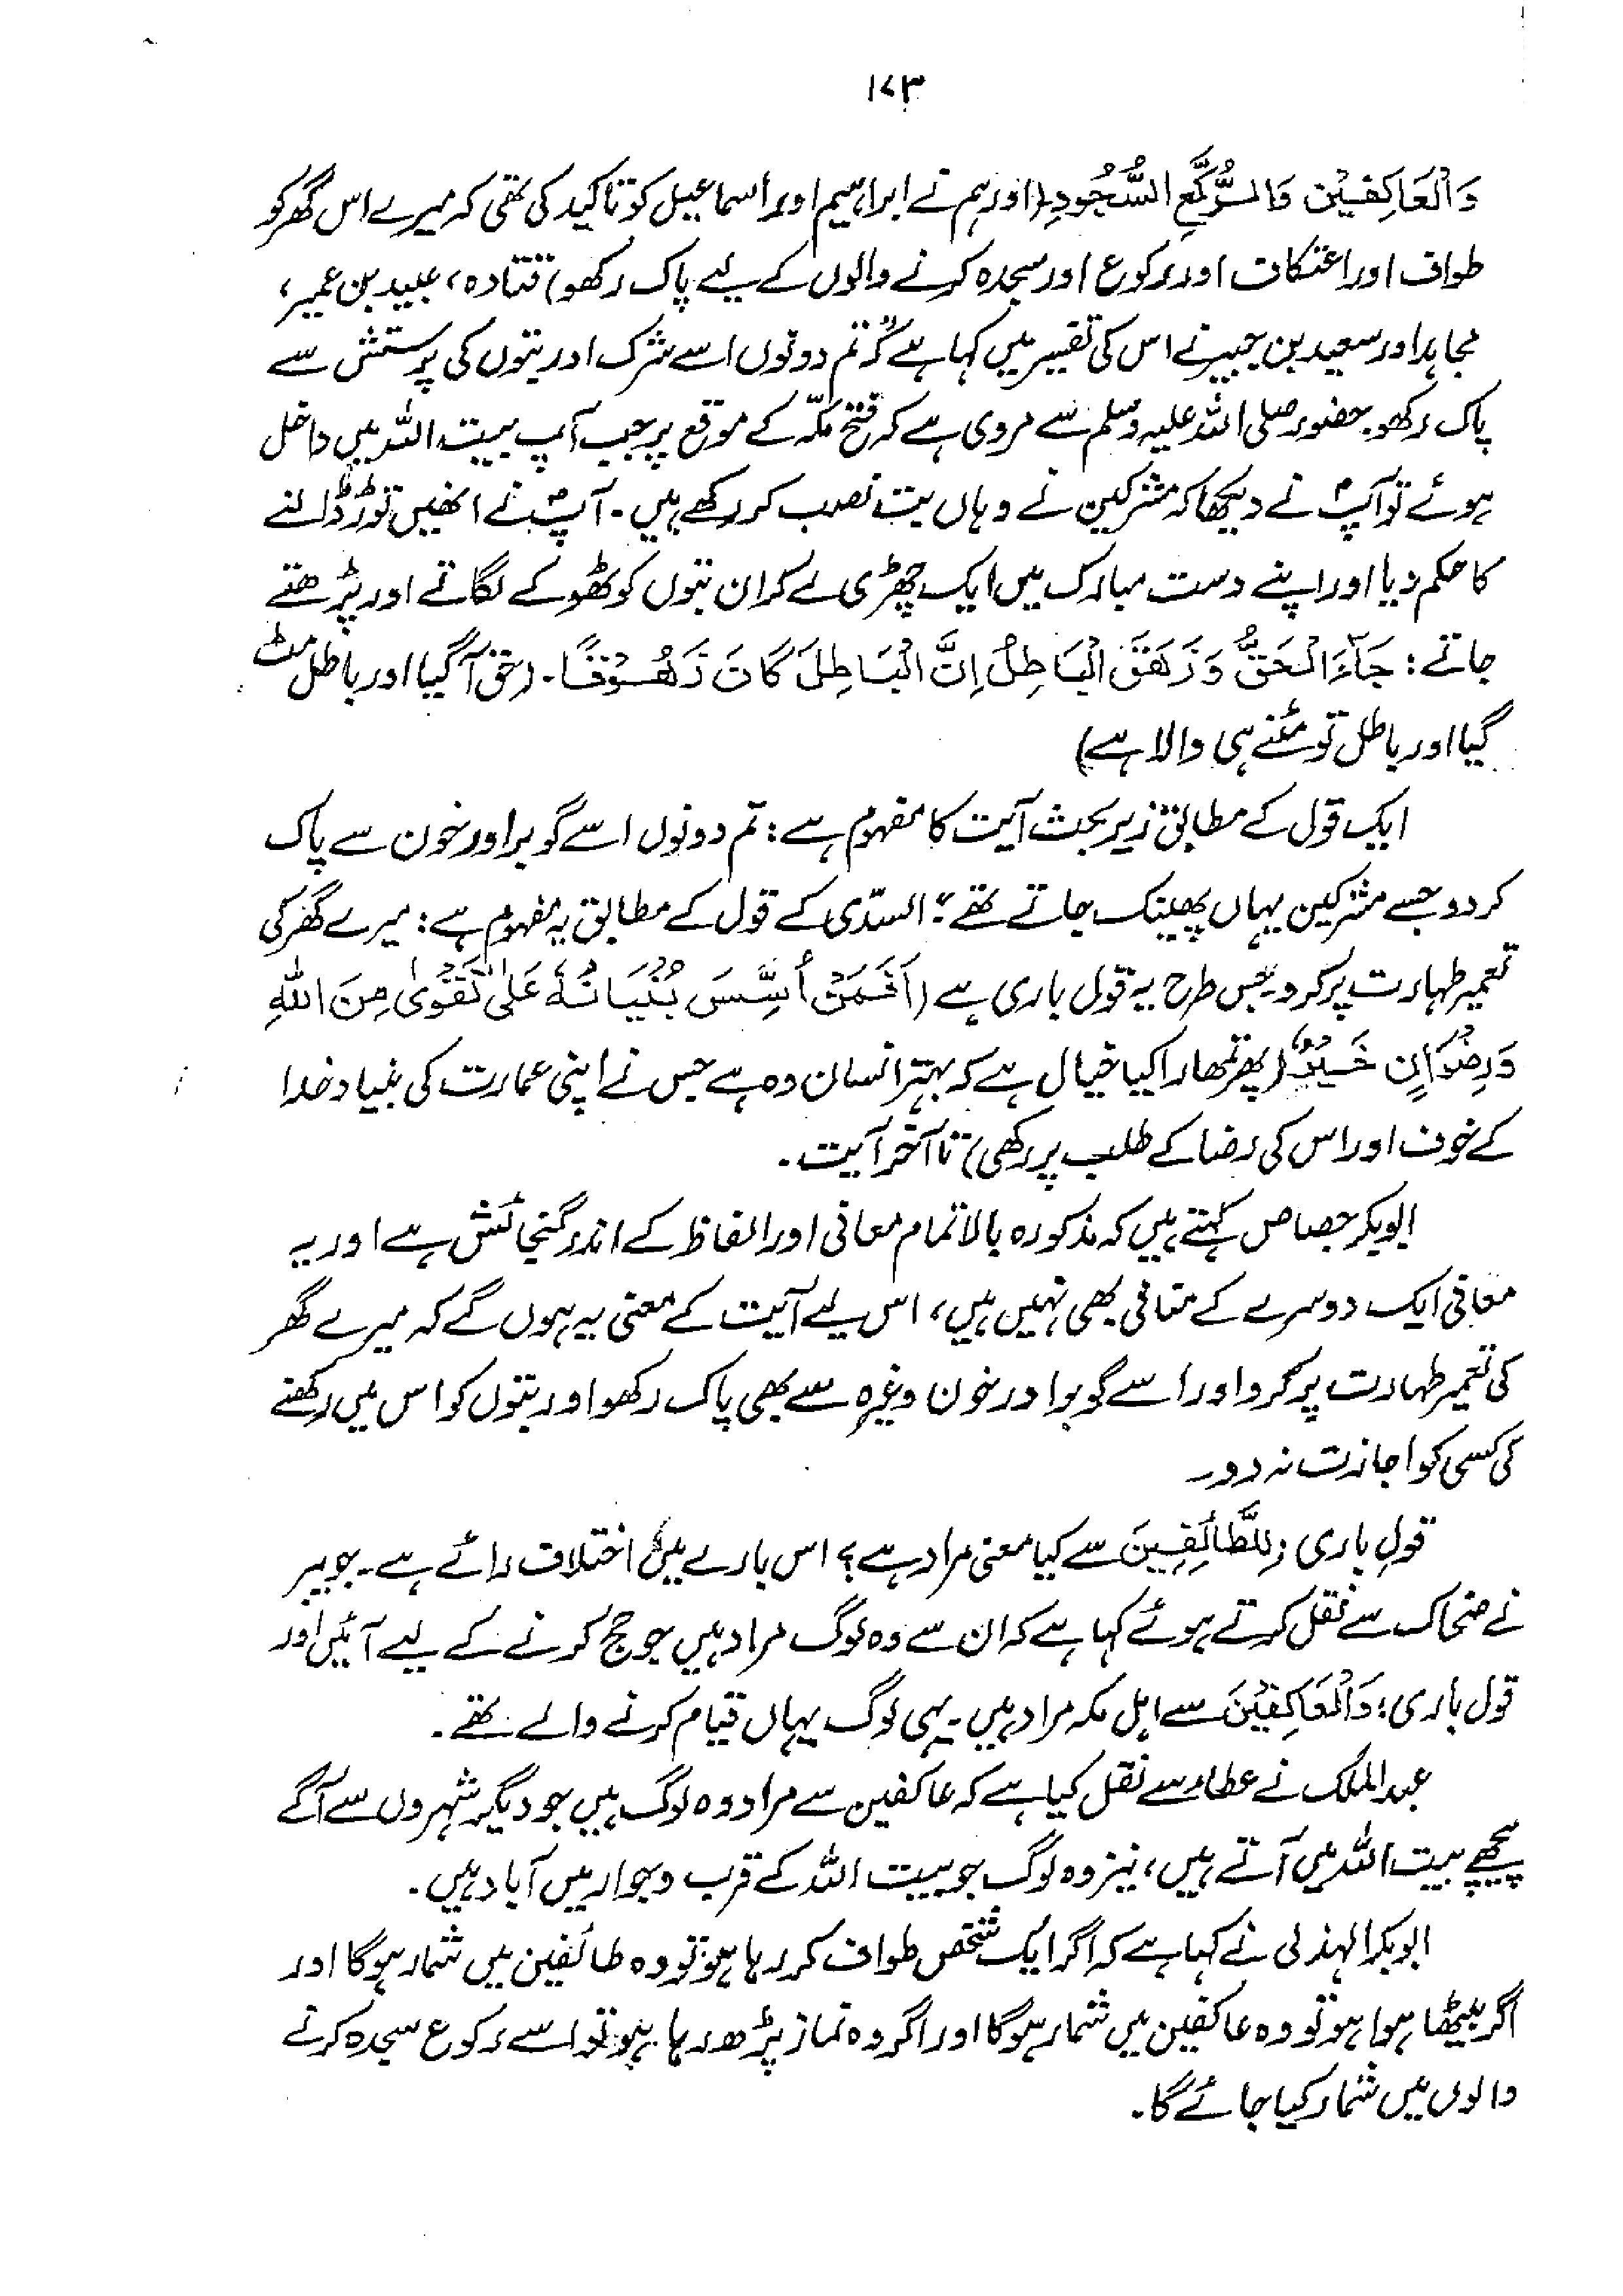 ۱۷۳
وَالْعَاكِفِيْن وَالرُّكَّعِ السُّجُودِ (اور ہم نے ابراہیم اور اسماعیل کو تاکید کی تھی کہ میرے اس گھر کو
طواف اور اعتکاف اور رکوع اور سجدہ کرنے والوں کے لیے پاک رکھو) قتادہ، عبید بن عمیر،
مجاہد اور سعید بن جبیر نے اس کی تفسیر میں کہا ہے کہ "تم دونوں اسے شرک اور بتوں کی پرستش سے
پاک رکھو۔ حضور صلی اللہ علیہ وسلم سے مروی ہے کہ فتح مکّہ کے موقع پر جب آپ بیت اللہ میں داخل
ہوئے تو آپؐ نے دیکھا کہ مشرکین نے وہاں بت نصب کر رکھے ہیں۔ آپؐ نے انھیں توڑ ڈالنے
کا حکم دیا اور اپنے دست مبارک میں ایک چھڑی لے کر ان بتوں کو ٹھوکے لگاتے اور پڑھتے
جاتے: جَآءَ الْحَقُّ وَزَهَقَ الْبَاطِلُ اِنَّ الْبَاطِلَ كَانَ زَهُوْقًا۔ (حق آ گیا اور باطل مٹ
گیا اور باطل تو مٹنے ہی والا ہے)
ایک قول کے مطابق زیر بحث آیت کا مفہوم ہے: تم دونوں اسے گوبر اور خون سے پاک
کر دو جسے مشرکین یہاں پھینک جاتے تھے"۔ السدّی کے قول کے مطابق یہ مفہوم ہے: میرے گھر کی
تعمیر طہارت پر کرو۔ جس طرح یہ قول باری ہے (اَفَمَنْ اُسِّسَ بُنْيَانُهٗ عَلٰى تَقْوٰى مِنَ اللهِ
وَرِضْوَانٍ خَيْرٌ (پھر تمھارا کیا خیال ہے کہ بہتر انسان وہ ہے جس نے اپنی عمارت کی بنیاد خدا
کے خوف اور اس کی رضا کے طلب پر رکھی) تا آخر آیت۔
ابوبکر جصاص کہتے ہیں کہ مذکورہ بالا تمام معانی اور الفاظ کے اندر گنجائش ہے اور یہ
معانی ایک دوسرے کے متنافی بھی نہیں ہیں، اس لیے آیت کے معنی یہ ہوں گے کہ میرے گھر
کی تعمیر طہارت پر کرو اور اسے گوبر اور خون وغیرہ سے بھی پاک رکھو اور بتوں کو اس میں رکھنے
کی کسی کو اجازت نہ دو۔
قولِ باری: لِلطَّائِفِينَ سے کیا معنی مراد ہے؟ اس بارے میں اختلاف رائے ہے۔ جویبر
نے ضحاک سے نقل کرتے ہوئے کہا ہے کہ ان سے وہ لوگ مراد ہیں جو حج کرنے کے لیے آئیں اور
قول باری: وَالْعَاكِفِيْنَ سے اہل مکہ مراد ہیں۔ یہی لوگ یہاں قیام کرنے والے تھے۔
عبد الملک نے عطاء سے نقل کیا ہے کہ عاکفین سے مراد وہ لوگ ہیں جو دیگر شہروں سے آگے
پیچھے بیت اللہ میں آتے ہیں، نیز وہ لوگ جو بیت اللہ کے قرب و جوار میں آباد ہیں۔
ابوبکر الہذلی نے کہا ہے کہ اگر ایک شخص طواف کر رہا ہو تو وہ طائفین میں شمار ہوگا اور
اگر بیٹھا ہوا ہو تو وہ عاکفین میں شمار ہوگا اور اگر وہ نماز پڑھ رہا ہو تو اسے رکوع سجدہ کرنے
والوں میں شمار کیا جائے گا۔